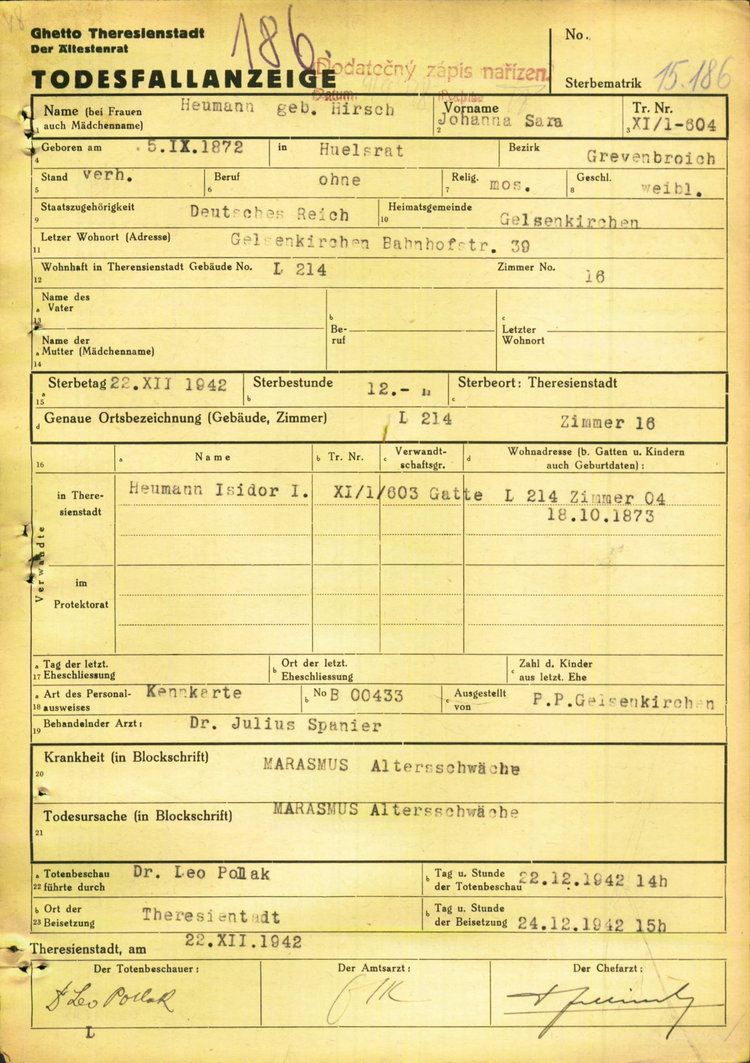 186.
Ghetto Theresienstadt
Der Ältestenrat
TODESFALLANZEIGE
Dodatečný zápis nařízen.
Datum:
No.
Sterbematrik 15.186
Name (bei Frauen auch Mädchenname) Heumann geb. Hirsch
1
Vorname Johanna Sara
2
Tr. Nr. XI/1-604
3
Geboren am 5.IX.1872 in Huelsrat Bezirk Grevenbroich
4
Stand verh. Beruf ohne Relig. mos. Geschl. weibl.
5 6 7 8
Staatszugehörigkeit Deutsches Reich Heimatsgemeinde Gelsenkirchen
9 10
Letzer Wohnort (Adresse) Gelsenkirchen Bahnhofstr. 39
11
Wohnhaft in Theresienstadt Gebäude No. L 214 Zimmer No. 16
12
Name des
a Vater
13
Name der
a Mutter (Mädchenname)
14
b
Be-
ruf
c
Letzter
Wohnort
Sterbetag 22.XII 1942 Sterbestunde 12.- Sterbeort: Theresienstadt
15 a b c
d Genaue Ortsbezeichnung (Gebäude, Zimmer) L 214 Zimmer 16
16 a Name b Tr. Nr. c Verwandt-schaftsgr. d Wohnadresse (b. Gatten u. Kindern auch Geburtdaten):
Verwandte
in There-
sienstadt
Heumann Isidor I. XI/1/603 Gatte L 214 Zimmer 04
18.10.1873
im
Protektorat
a Tag der letzt.
17 Eheschliessung
b Ort der letzt.
Eheschliessung
c Zahl d. Kinder
aus letzt. Ehe
a Art des Personal-
18 ausweises
Kennkarte
b No B 00433
c Ausgestellt
von
P.P.Gelsenkirchen
Behandelnder Arzt: Dr. Julius Spanier
19
Krankheit (in Blockschrift) MARASMUS Altersschwäche
20
Todesursache (in Blockschrift) MARASMUS Altersschwäche
21
a Totenbeschau
22 führte durch
Dr. Leo Pollak
b Tag u. Stunde
der Totenbeschau
22.12.1942 14h
b Ort der
23 Beisetzung
Theresientadt
b Tag u. Stunde
der Beisetzung
24.12.1942 15h
Theresienstadt, am 22.XII.1942
Der Totenbeschauer: Der Amtsarzt: Der Chefarzt:
Dr Leo Pollak
L